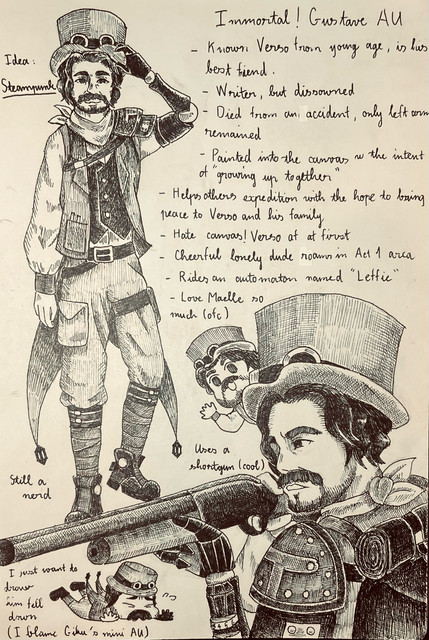 Immortal! Gustave AU
Idea:
Steampunk
- Known Verso from young age, is his
best friend.
- Writer, but dissowned
- Died from an accident, only left arm
remained
- Painted into the canvas w the intent
of "growing up together"
- Helps others expedition with the hope to bring
peace to Verso and his family
- Hate canvas! Verso at at first
- Cheerful lonely dude roams in Act 1 area
- Rides an automaton named "Lettie"
- Love Maelle so
much (ofc)
Uses a
shortgun (cool)
Still a
nerd
I just want to
draw
him fell
down
(I blame Giku's mini AU)